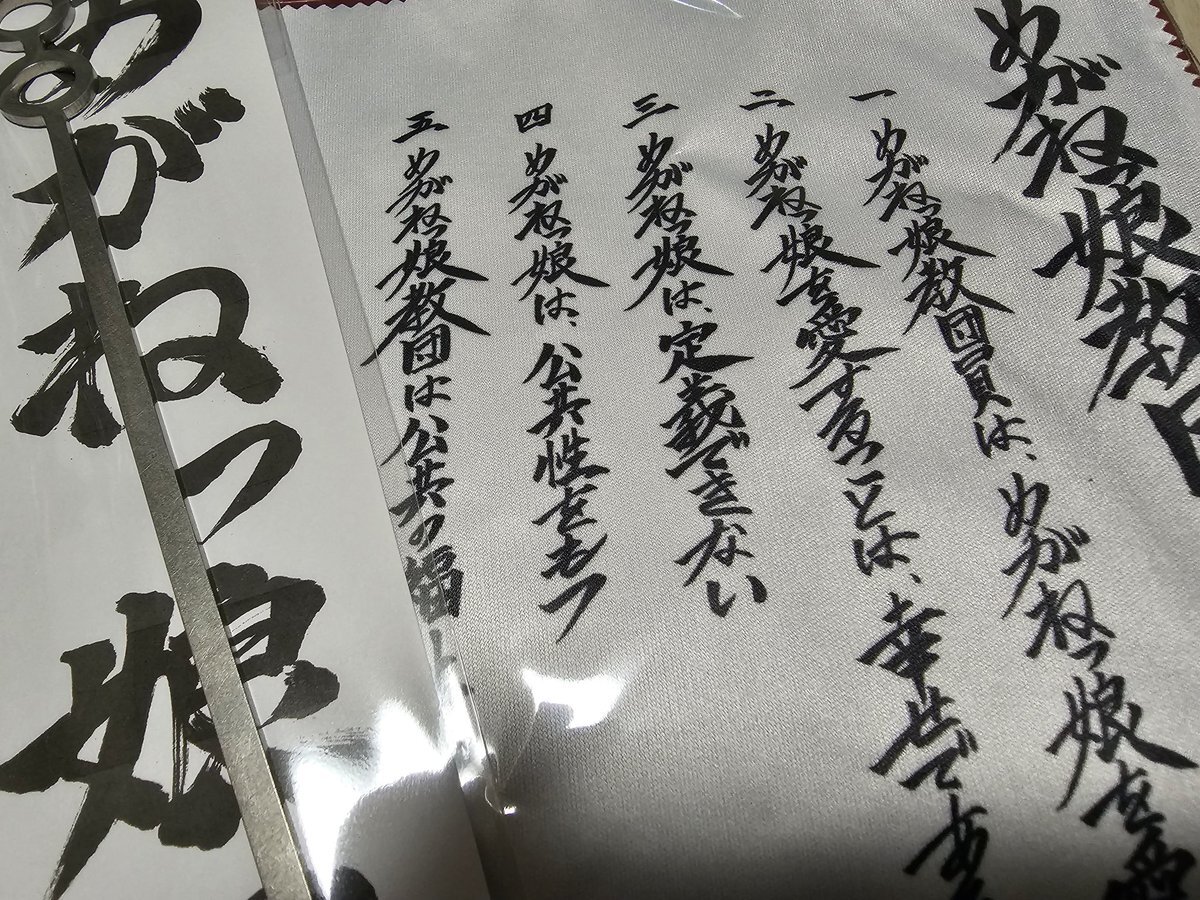 めがねっ娘教団
一 めがねっ娘教団員は、めがねっ娘を愛
二 めがねっ娘を愛することは、幸せであ
三 めがねっ娘は、定義できない
四 めがねっ娘は、公共性をもつ
五 めがねっ娘教団は公共の福
めがねっ娘